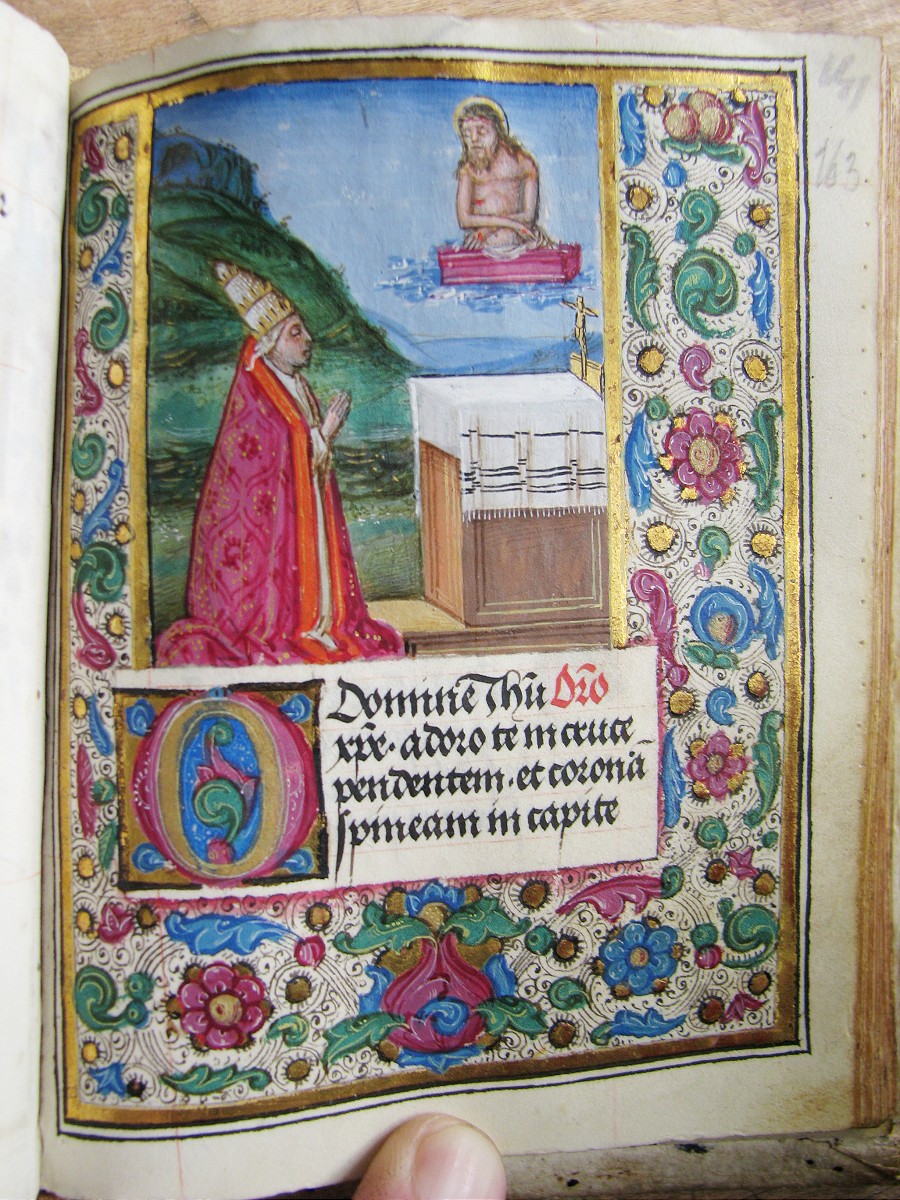 163
O Domine Ihū Orō
xp̄e. adoro te in cruce
pendentem. et coronā
spineam in capite